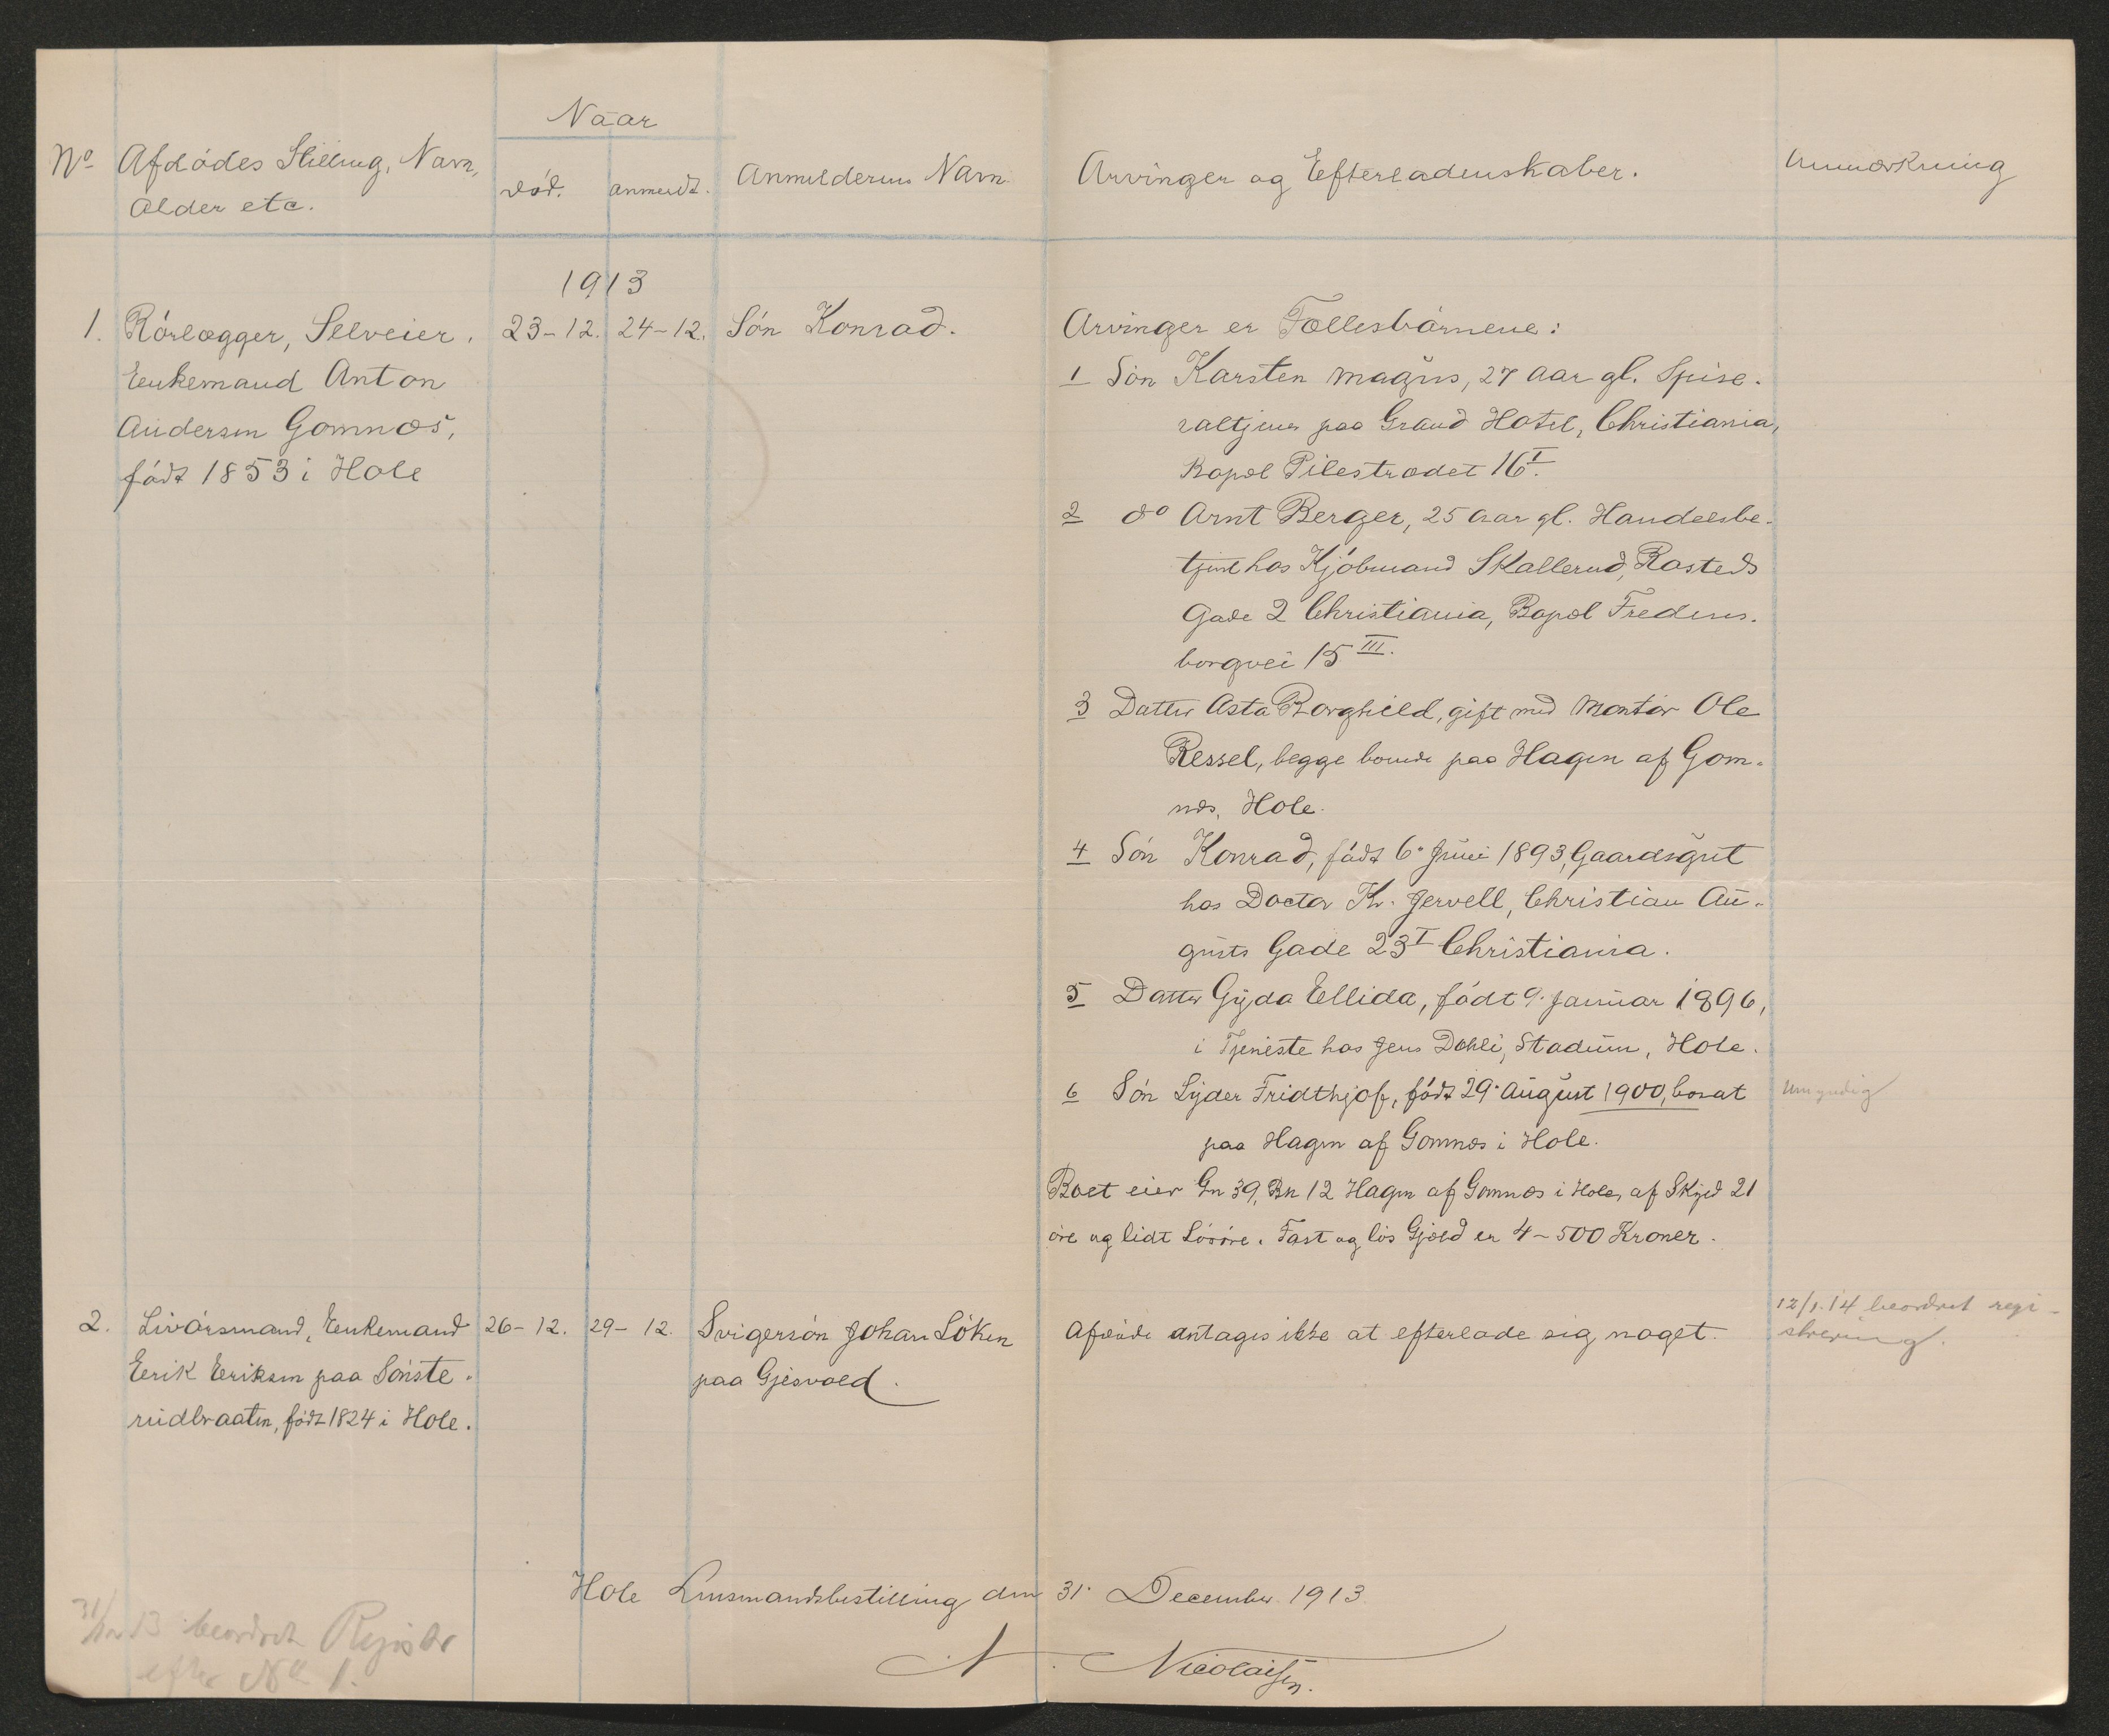 Naar
No Afdödes Stilling, Navn,
Alder etc.
död. anmeldt.
Anmelderens Navn
Arvinger og Efterladenskaber.
Anmærkning
1913
1. Rörlægger, Selveier,
Enkemand Anton
Andersen Gomnæs,
född 1853 i Hole
23-12. 24-12. Sön Konrad.
Arvinger er Fællesbörnene:
1 Sön Karsten Magnus, 27 Aar gl. Spise-
saltjener paa Grand Hotel, Christiania,
Bopæl Pilestrædet 16 I.
2 do Arnt Berger, 25 Aar gl. Handelsbe-
tjent hos Kjöbmand Skallerud, Rosteds
Gade 2 Christiania, Bopæl Fredens-
borgvei 15 III.
3 Datter Asta Borghild, gift med Montör Ole
Ressel, begge boende paa Hagen af Gom-
næs, Hole.
4 Sön Konrad, födt 6. Juni 1893, Gaardsgut
hos Doctor Kr. Jervell, Christian Au-
gusts Gade 23 I Christiania.
5 Datter Gyda Ellida, födt 9. Januar 1896,
i Tjeneste hos Jens Dæhli, Stadum, Hole.
6 Sön Lyder Fridthjof, födt 29. August 1900, bosat
paa Hagen af Gomnæs i Hole.
Umyndig
Boet eier Gn 39, Bn 12 Hagen af Gomnæs i Hole, af Skyld 21
öre og lidt Lösöre. Fast og lös Gjæld er 4-500 Kroner.
2. Livörsmand, Enkemand
Eerik Eeriksen paa Sönste-
rudbraaten, födt 1824 i Hole.
26-12. 29-12. Svigersön Johan Löken
paa Gjesvold.
Afdöde antages ikke at efterlade sig noget.
12/1.14 beordret regi-
strering.
Hole Lensmandsbestilling den 31. December 1913.
N. Nicolaisen.
31/12 13 beordret Registr
efter No 1.